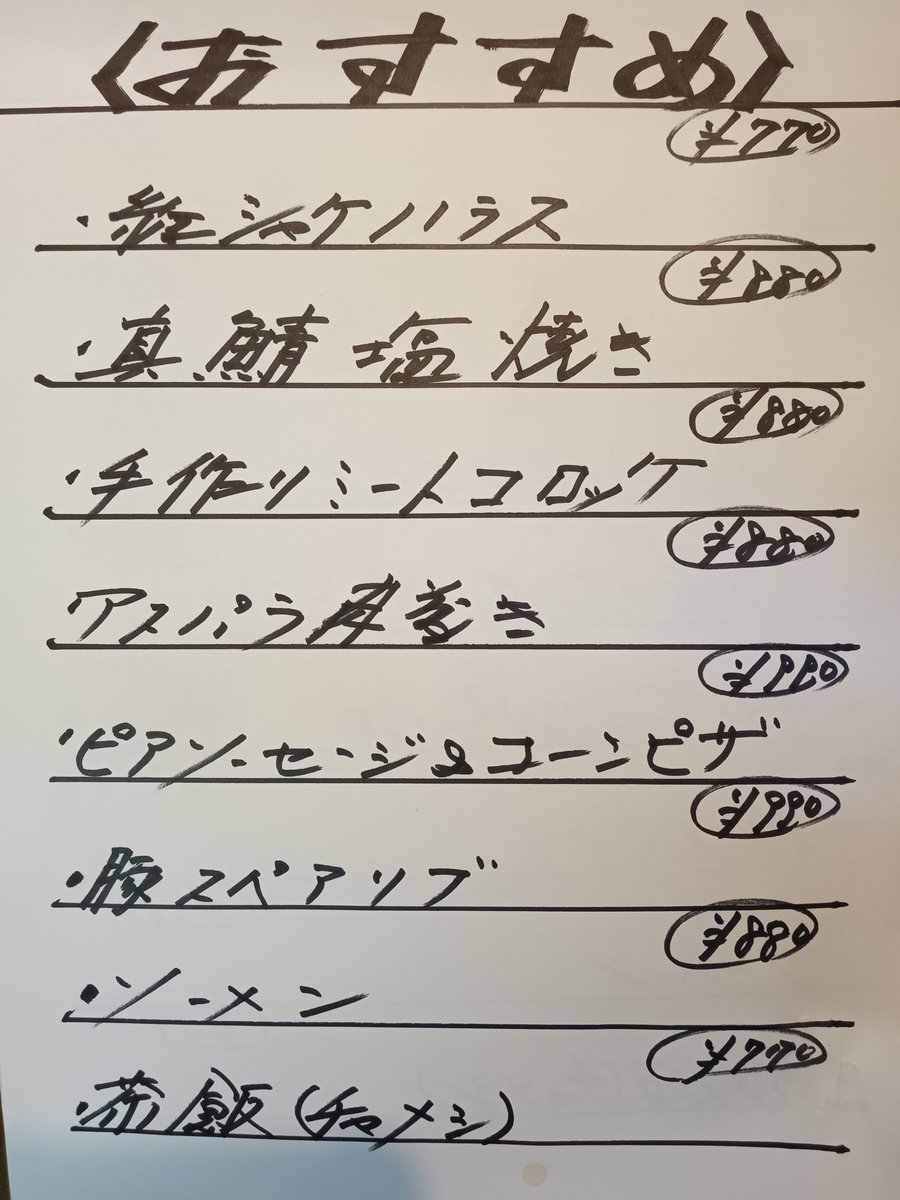 〈おすすめ〉
¥770
・紅シャケハラス
¥880
・真鯖塩焼き
¥880
・手作りミートコロッケ
¥880
アスパラ豚巻き
¥990
・ピアソーセージ&コーンピザ
¥990
・豚スペアリブ
¥880
・ソーメン
¥770
・茶飯(チャメシ)